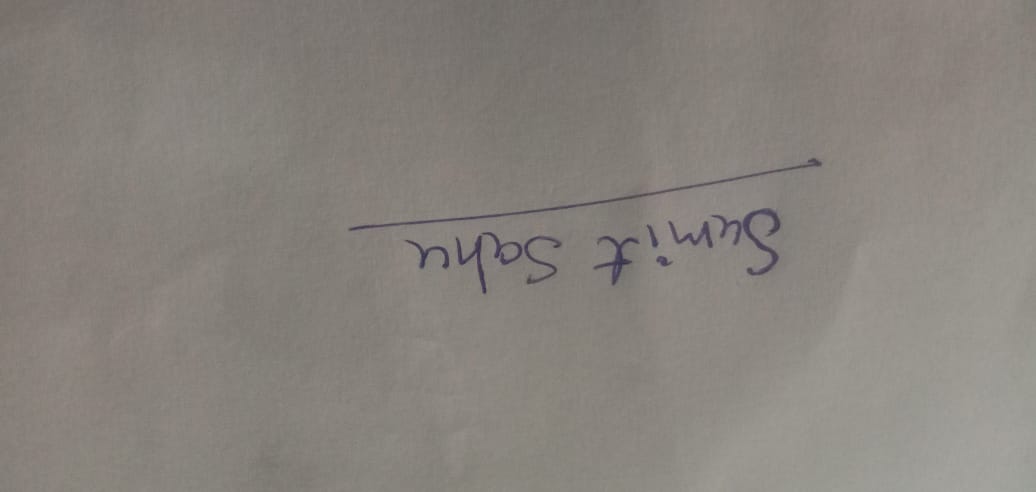 Sumit Sahu